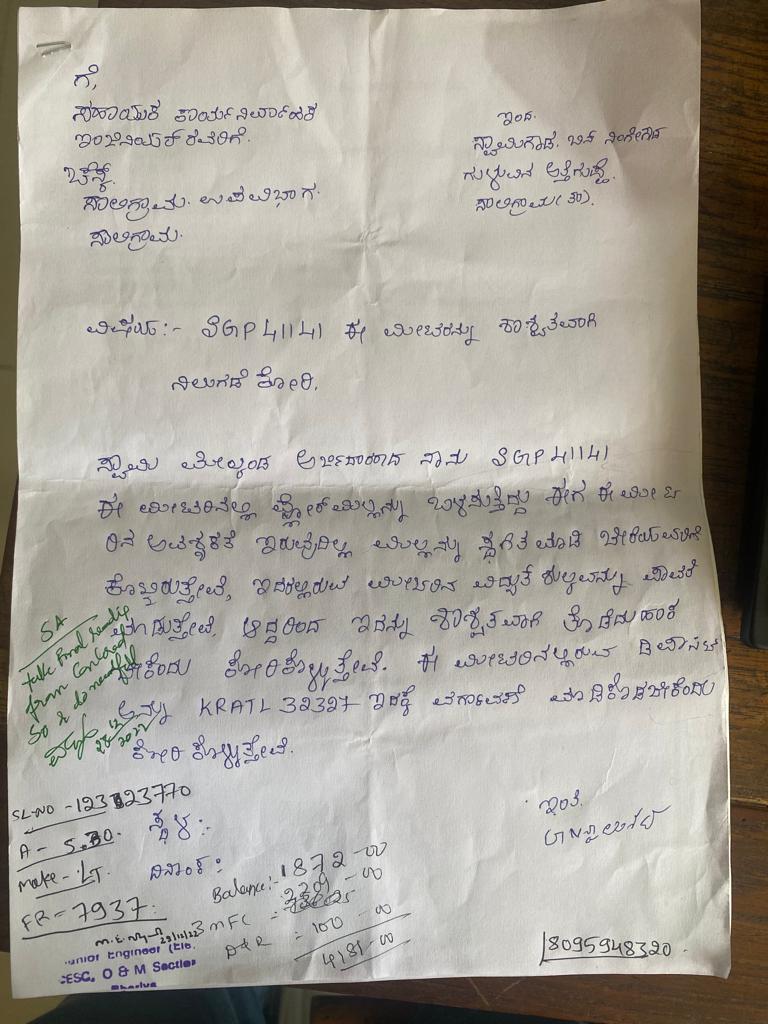 ಗೆ,
ಸಹಾಯಕ ಕಾರ್ಯನಿರ್ವಾಹಕ
ಇಂಜಿನಿಯರ್ ರವರಿಗೆ.
ಚೆಸ್ಕ್.
ಸಾಲಿಗ್ರಾಮ. ಉಪವಿಭಾಗ.
ಸಾಲಿಗ್ರಾಮ.
ಇಂದ.
ಸ್ವಾಮಿಗೌಡ. ಬಿನ್ ನಿಂಗೇಗೌಡ
ಗುಳುವಿನ ಅತ್ತಿಗುಪ್ಪೆ.
ಸಾಲಿಗ್ರಾಮ(ತಾ).
ವಿಷಯ:- SGP 41141 ಈ ಮೀಟರನ್ನು ಶಾಶ್ವತವಾಗಿ
ನಿಲುಗಡೆ ಕೋರಿ.
ಸ್ವಾಮಿ ಮೇಲ್ಕಂಡ ಅರ್ಜಿದಾರರಾದ ನಾನು SGP 41141
ಈ ಮೀಟರಿನಲ್ಲಿ ಫ್ಲೋರ್ ಮಿಲ್ಲನ್ನು ಬಳಸುತ್ತಿದ್ದು ಈಗ ಈ ಮೀಟ
ರಿನ ಅವಶ್ಯಕತೆ ಇರುವುದಿಲ್ಲ ಮಿಲ್ಲನ್ನು ಸ್ಥಗಿತ ಮಾಡಿ ಬೇರೆಯವರಿಗೆ
ಕೊಟ್ಟಿರುತ್ತೇವೆ, ಇದರಲ್ಲಿರುವ ಮೀಟರಿನ ವಿದ್ಯುತ್ ಶುಲ್ಕವನ್ನು ಪಾವತಿ
ಮಾಡುತ್ತೇವೆ. ಆದ್ದರಿಂದ ಇದನ್ನು ಶಾಶ್ವತವಾಗಿ ತೆಗೆದುಹಾಕ
ಬೇಕೆಂದು ಕೋರಿಕೊಳ್ಳುತ್ತೇವೆ. ಈ ಮೀಟರಿನಲ್ಲಿರುವ ಡಿಪಾಸಿಟ್
ಅನ್ನು KRATL 32327 ಇದಕ್ಕೆ ವರ್ಗಾವಣೆ ಮಾಡಿಕೊಡಬೇಕೆಂದು
ಕೋರಿಕೊಳ್ಳುತ್ತೇವೆ.
SA
take Final reading
from Concerned
SO & do needful
SL-NO -123123770
A - 5-30.
Make - LT.
FR = 7937.
ಸ್ಥಳ:-
ದಿನಾಂಕ:
ಇಂತಿ.
Balance:- 1872-00
3 MFC = 2209-00
D&R = 100-00
4181-00
23/12/22
Junior Engineer (Ele.
CESC, O & M Section
8095948320.